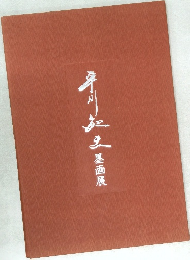 平川敏夫墨画展